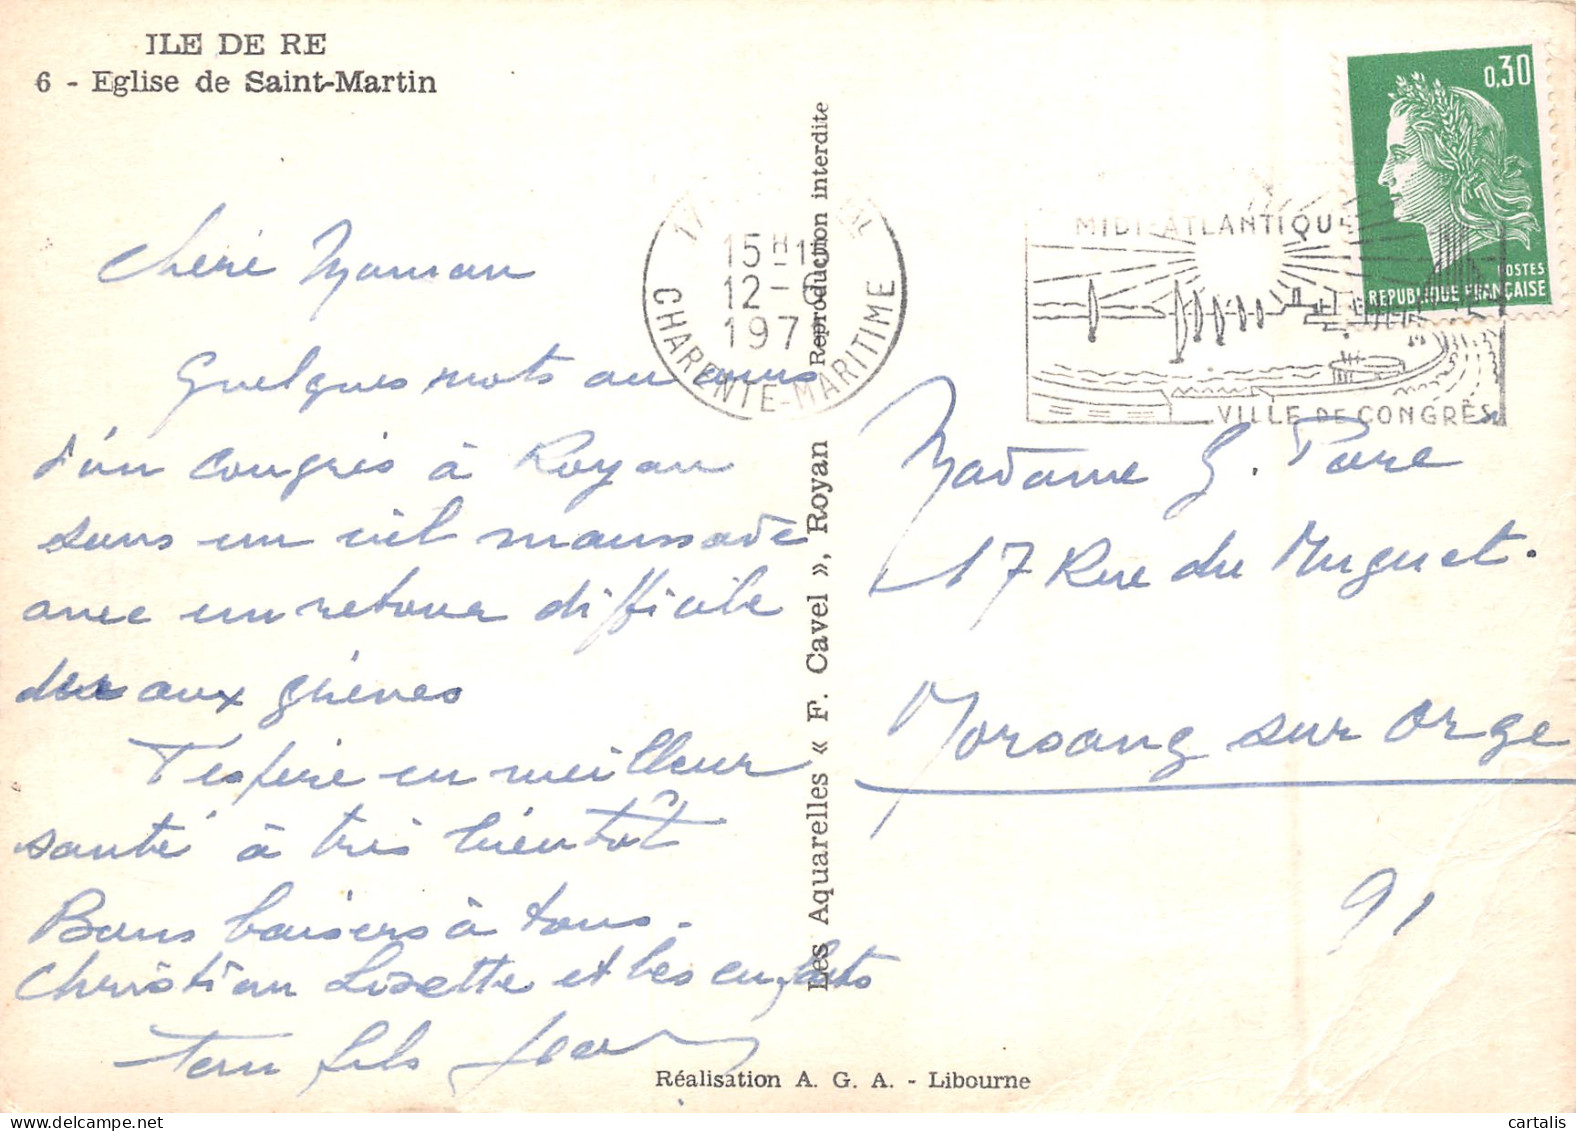 ILE DE RE
6 - Eglise de Saint-Martin
Chère Maman
Quelques mots au cours
d'un congrès à Royan
sous un ciel maussade
avec un retour difficile
dû aux grèves
T'espère en meilleur
santé à très bientôt
Bons baisers à tous.
Christian Lisette et les enfants
ton fils Jean
Les Aquarelles « F. Cavel », Royan Reproduction interdite
Réalisation A. G. A. - Libourne
15 H
12 - 6
197
CHARENTE-MARITIME
MIDI-ATLANTIQUE
VILLE DE CONGRÈS
0,30
POSTES
REPUBLIQUE FRANÇAISE
Madame G. Pare
17 Rue du Muguet.
Morsang sur Orge
91
cartalis